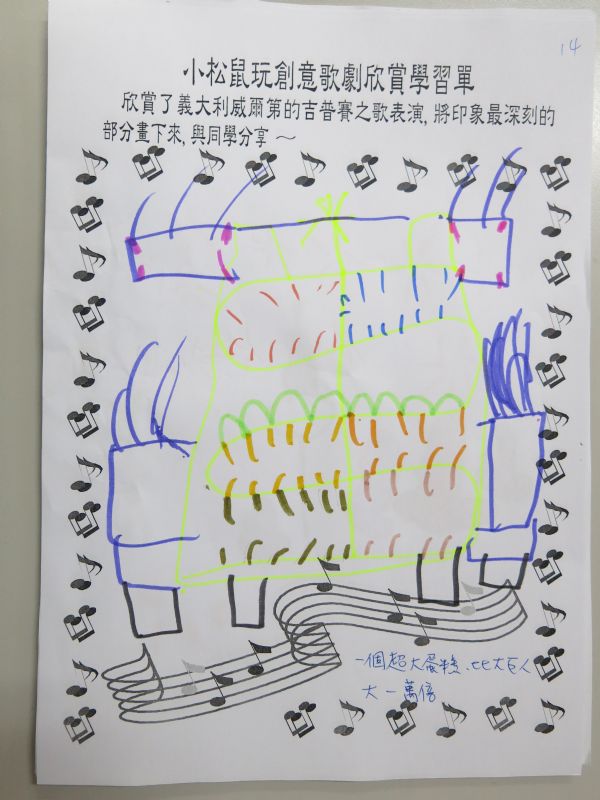 14
小松鼠玩創意歌劇欣賞學習單
欣賞了義大利威爾第的吉普賽之歌表演,將印象最深刻的
部分畫下來,與同學分享～
一個超大蛋糕、比大巨人
大一萬倍